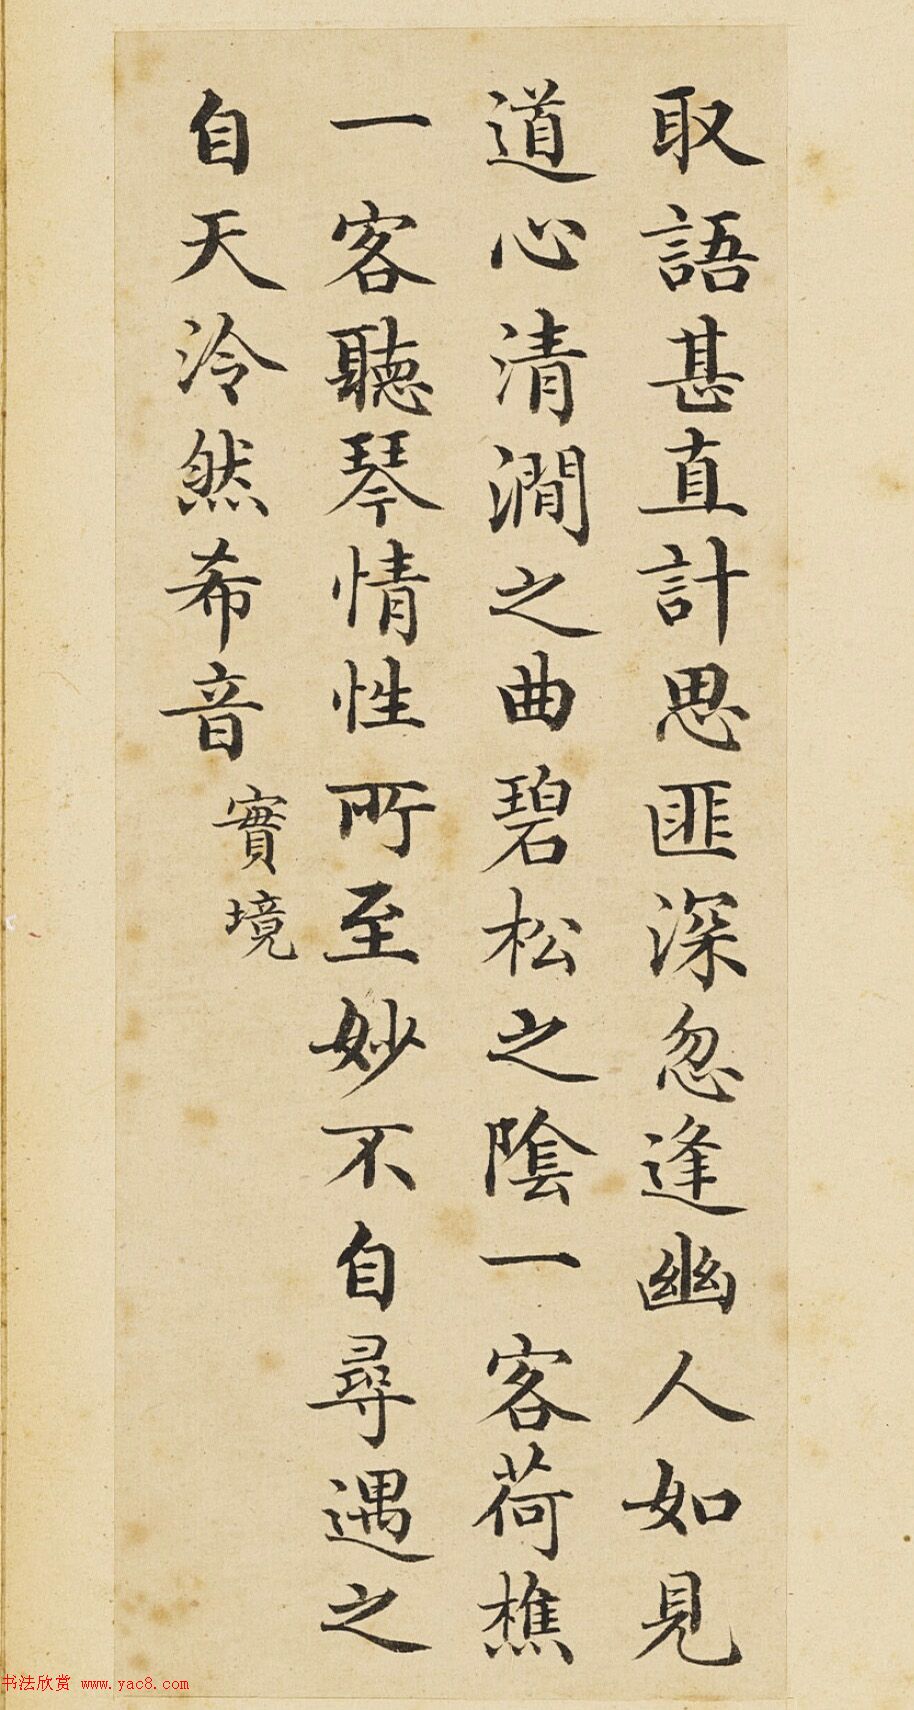 取語甚直計思匪深忽逢幽人如見
道心清澗之曲碧松之陰一客荷樵
一客聽琴情性所至妙不自尋遇之
自天泠然希音實境
书法欣赏 www.yac8.com